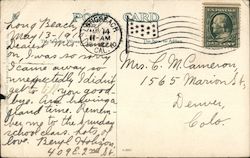 POST CARD
Long Beach
May 13-19
LONG BEACH
MAY 14
11-AM
CAL.
Dearest
on, I was so sorry
I came away so
unexpectedly I didn't
get to you good
bye. Am having a
grand time. Remem
ber me to the Sunday
school class. Lots of
love. Beryl Hobson
409 E 2nd St.
Mrs. C. M. Cameron
1565 Marion St,
Denver,
Colo.